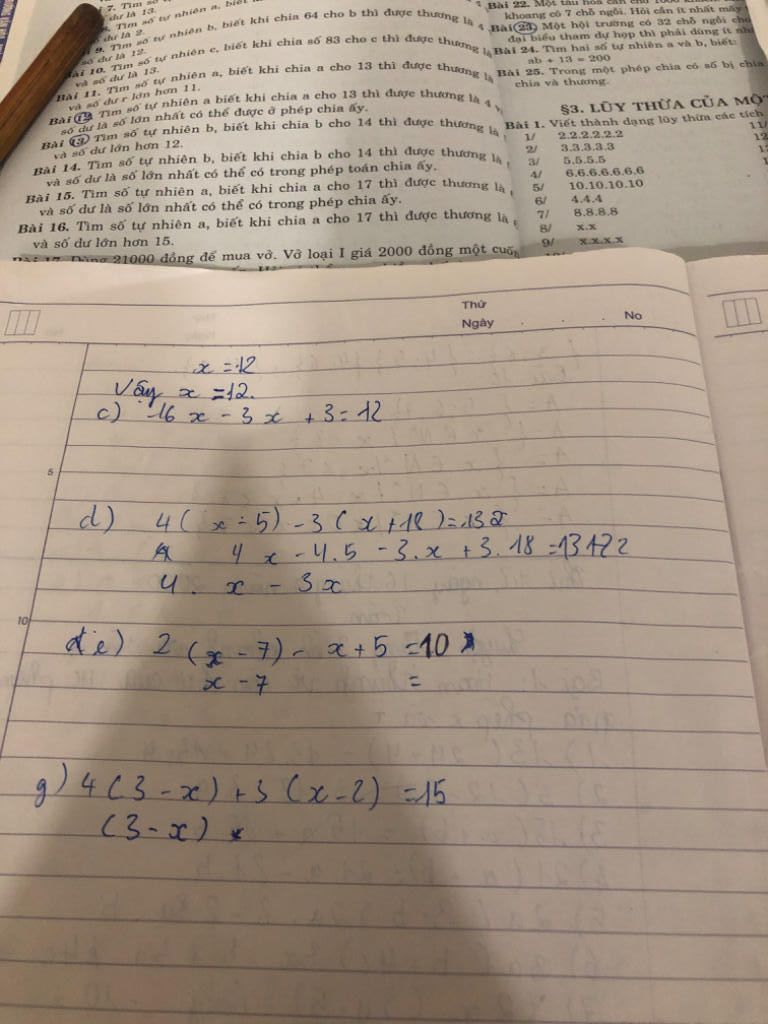 7. Tìm số
dư là 13.
Tìm số tự nhiên a, biết
dư là 2.
9. Tìm số tự nhiên b, biết khi chia 64 cho b thì được thương là 4
dư là 12.
Bài 10. Tìm số tự nhiên c, biết khi chia số 83 cho c thì được thương
và số dư là 13.
Bài 11. Tìm số tự nhiên a, biết khi chia a cho 13 thì được thương là
và số dư r lớn hơn 11.
Bài 12. Tìm số tự nhiên a biết khi chia a cho 13 thì được thương là 4
số dư là số lớn nhất có thể được ở phép chia ấy.
Bài 13. Tìm số tự nhiên b, biết khi chia b cho 14 thì được thương
và số dư lớn hơn 12.
Bài 14. Tìm số tự nhiên b, biết khi chia b cho 14 thì được thương
và số dư là số lớn nhất có thể có trong phép toán chia ấy.
Bài 15. Tìm số tự nhiên a, biết khi chia a cho 17 thì được thương là
và số dư là số lớn nhất có thể có trong phép chia ấy.
Bài 16. Tìm số tự nhiên a, biết khi chia a cho 17 thì được thương là
và số dư lớn hơn 15.
Bài 17. Dùng 21000 đồng để mua vở. Vở loại I giá 2000 đồng một cuốn
Bài 22. Một tàu hỏa cần chở 1000 khách
khoang có 7 chỗ ngồi. Hỏi cần ít nhất mấy
Bài 23. Một hội trường có 32 chỗ ngồi cho
đại biểu tham dự họp thì phải dùng ít nhấ
Bài 24. Tìm hai số tự nhiên a và b, biết:
ab + 13 = 200
Bài 25. Trong một phép chia có số bị chia
chia và thương.
§3. LŨY THỪA CỦA MỘT
Bài 1. Viết thành dạng lũy thừa các tích
1/ 2.2.2.2.2.2
2/ 3.3.3.3.3
3/ 5.5.5.5
4/ 6.6.6.6.6.6.6
5/ 10.10.10.10
6/ 4.4.4
7/ 8.8.8.8
8/ x.x
9/ x.x.x.x
11/
12
Thứ
Ngày . . . No
x = 12
Vậy x = 12.
c) 16 x - 3 x + 3 = 12
5
d) 4 ( x - 5) - 3 ( x + 18 ) = 132
4 x - 4.5 - 3.x + 3.18 =
4. x - 3x
10
e) 2 (x - 7) - x + 5 = 10
x - 7 =
g) 4 (3 - x) + 3 (x - 2) = 15
(3 - x)